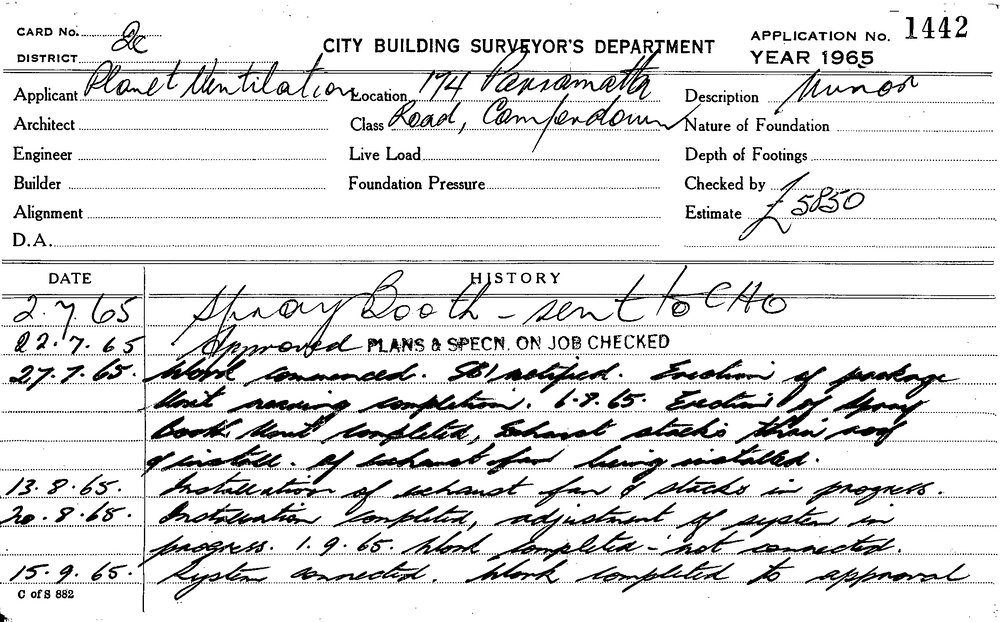 CARD No. 2c
CITY BUILDING SURVEYOR'S DEPARTMENT
APPLICATION No. 1442
DISTRICT
YEAR 1965
Applicant Planet Ventilation Location 174 Parramatta Description Minor
Architect Class Road, Camperdown Nature of Foundation
Engineer Live Load Depth of Footings
Builder Foundation Pressure Checked by
Alignment Estimate £5850
D.A.
DATE HISTORY
2.7.65 Spray Booth - sent to CHO
22.7.65 Approved PLANS & SPECN. ON JOB CHECKED
27.7.65. Work commenced. notified. Erection of package
Unit nearing completion. 6.8.65. Erection of Spray
Booth Unit completed, Exhaust stacks roof
& install. of exhaust fan being installed.
13.8.65. Installation of exhaust fan & stacks in progress.
20.8.65. Installation completed, adjustment of system in
progress. 1.9.65. Work completed - not connected.
15.9.65. System connected. Work completed to approval
C of S 882